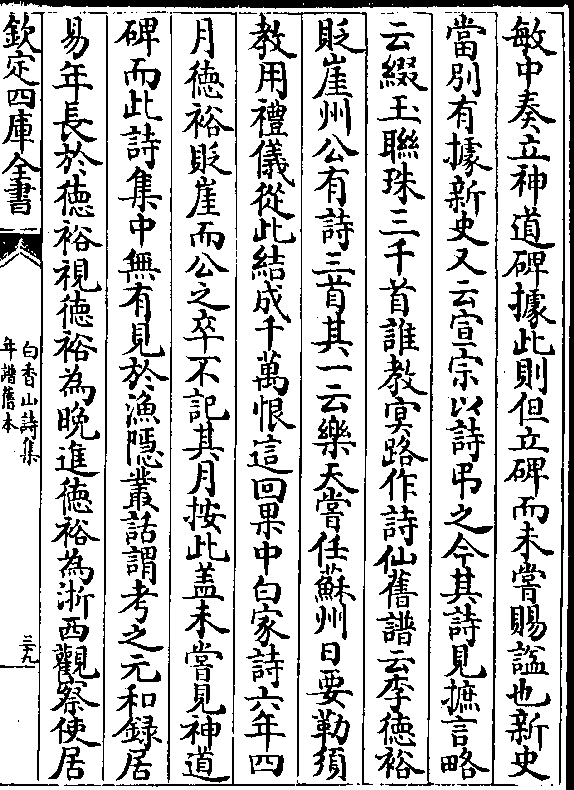 敏中奏立神道碑據此則但立碑而未嘗賜謚也新史
當別有據新史又云宣宗以詩弔之今其詩見摭言略
云綴玉聯珠三千首誰教冥路作詩仙舊譜云李徳裕
貶崖州公有詩三首其一云樂天嘗任蘇州日要勒須
教用禮儀從此結成千萬恨這回果中白家詩六年四
月徳裕貶崖而公之卒不記其月按此蓋未嘗見神道
碑而此詩集中無有見於漁隱叢話謂考之元和録居
易年長於徳裕視徳裕為晩進徳裕為浙西觀察使居
欽定四庫全書
白香山詩集
年譜舊本
三十九